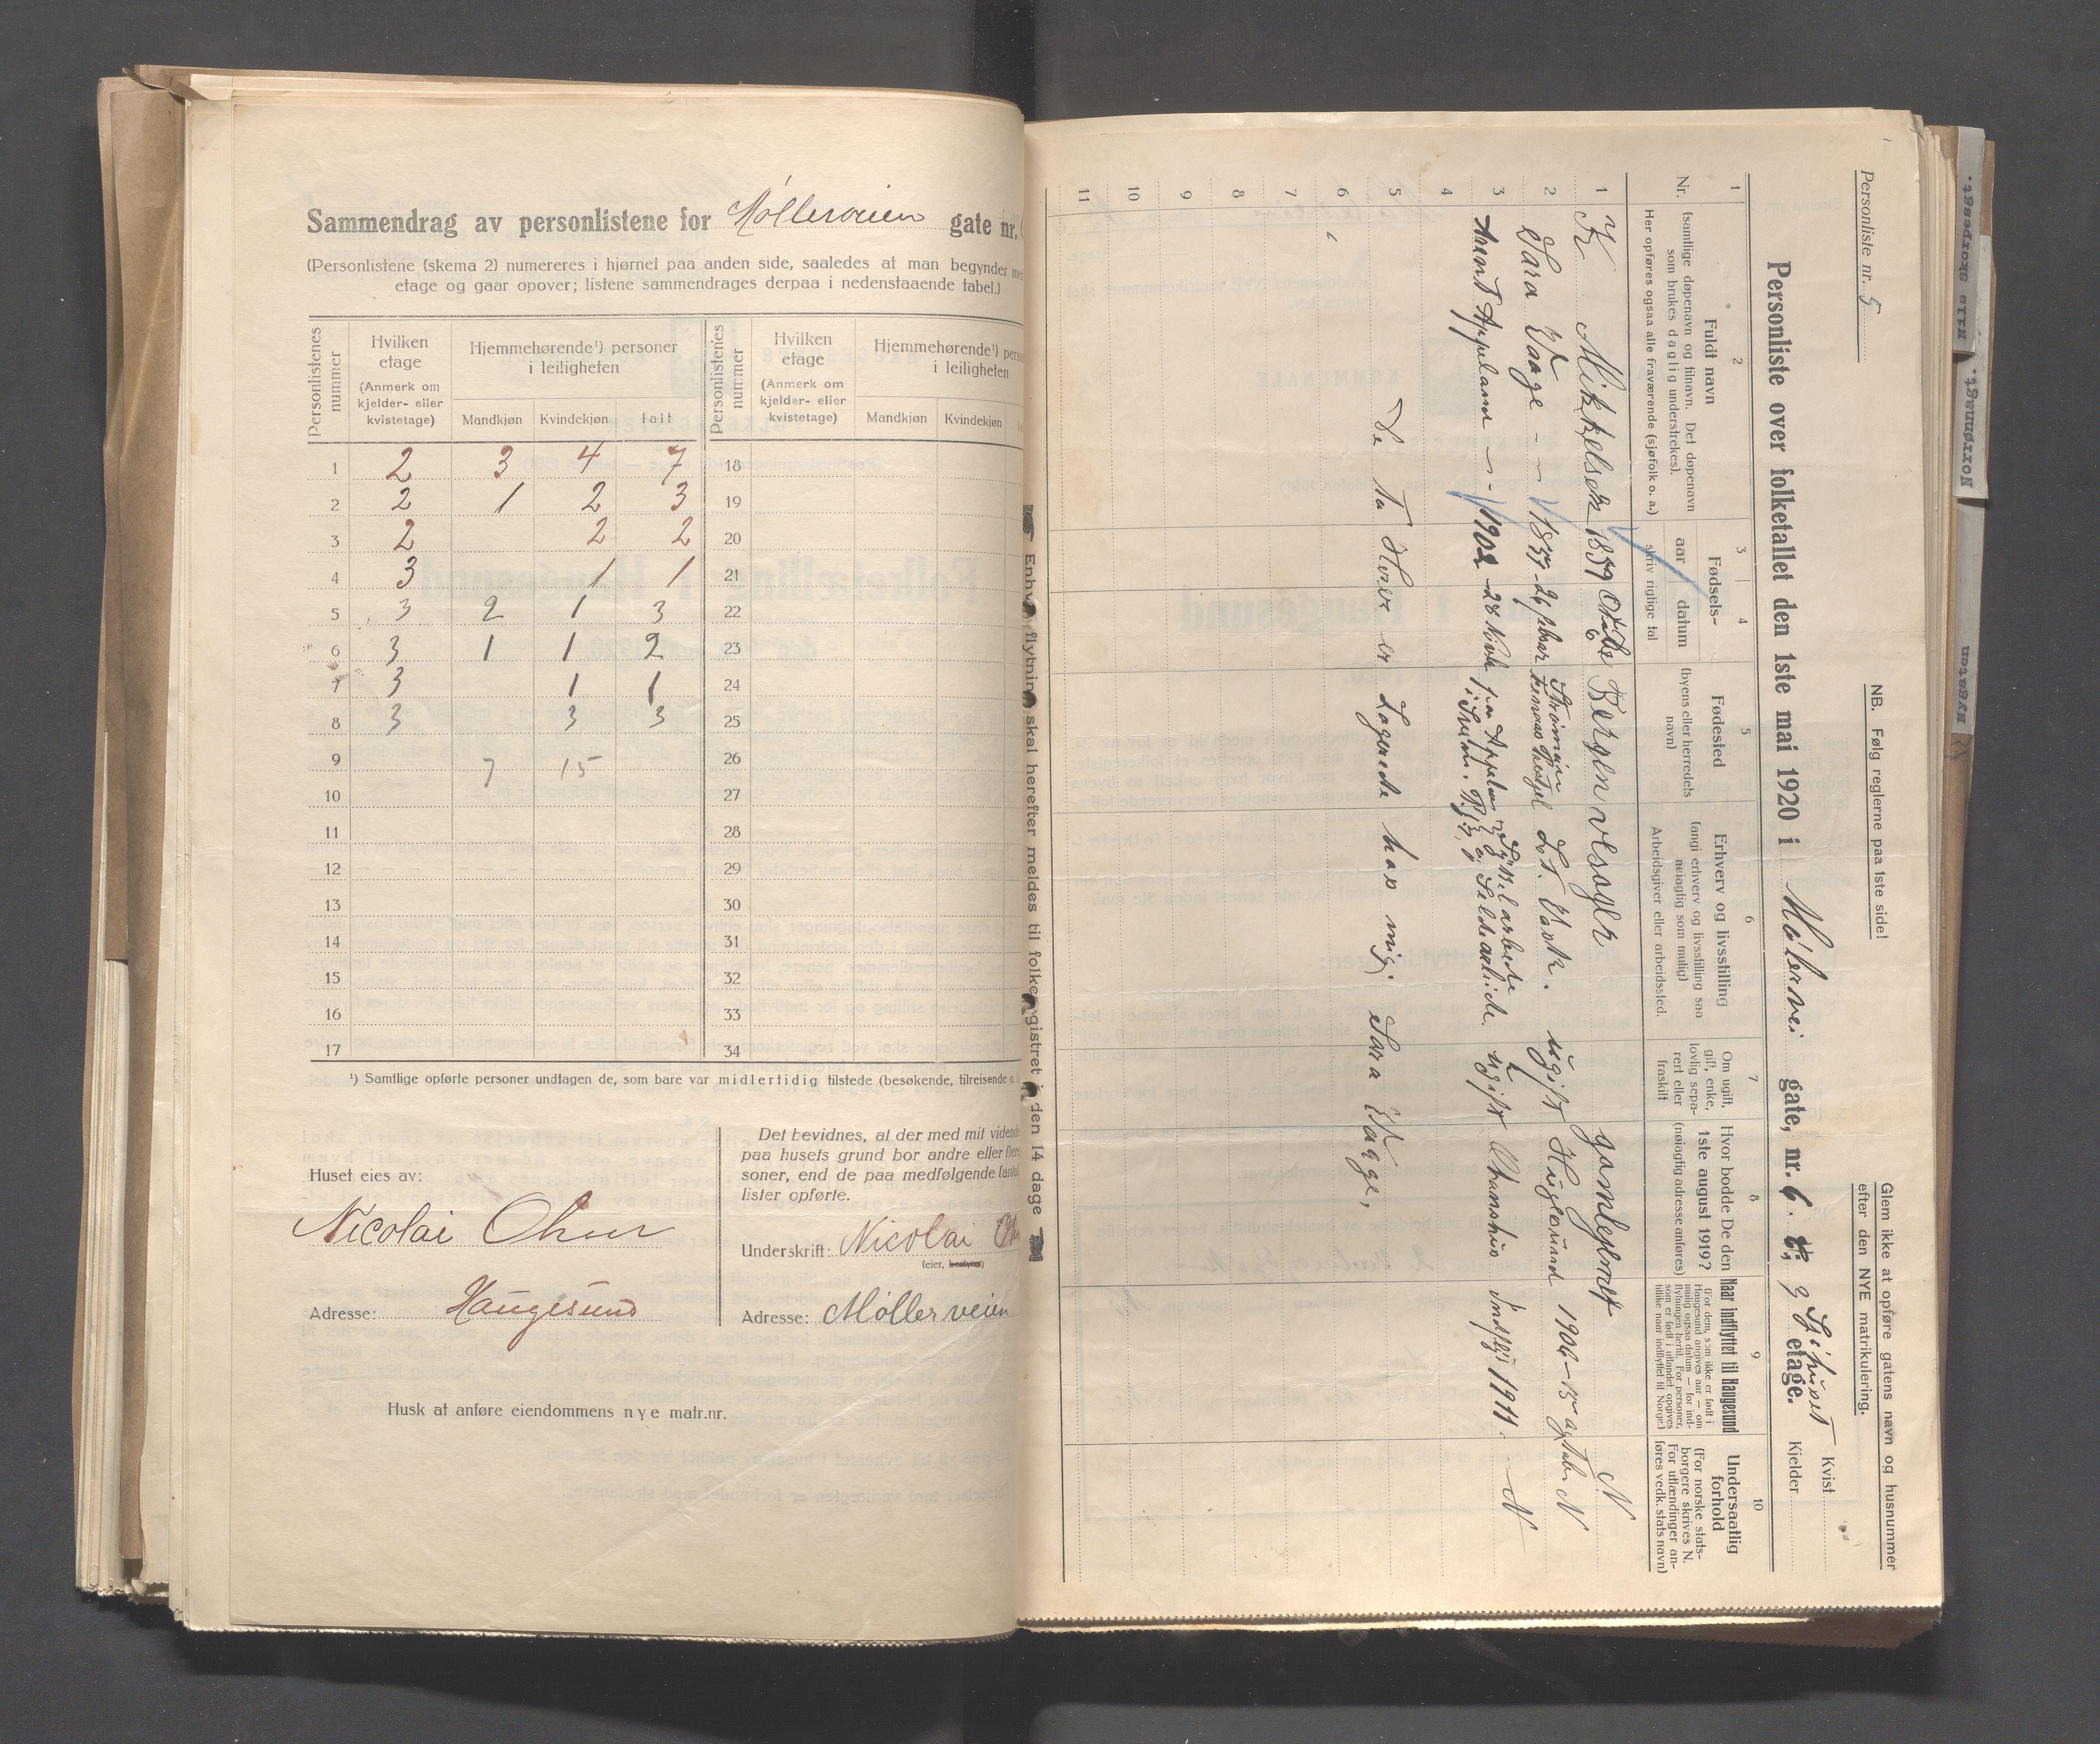 Sammendrag av personlistene for Møllerveien gate nr.
(Personlistene (skema 2) numereres i hjørnet paa anden side, saaledes at man begynder
etage og gaar opover; listene sammendrages derpaa i nedenstaaende tabel.)
Personlistenes nummer
Hvilken etage
(Anmerk om kjelder- eller kvistetage)
Hjemmehørende¹) personer i leiligheten
Mandkjøn Kvindekjøn Ialt
Personlistenes nummer
Hvilken etage
(Anmerk om kjelder- eller kvistetage)
Hjemmehørende¹)
i leiligheten
Mandkjøn Kvindekjøn
1 2 3 4 7 18
2 2 1 2 3 19
3 2 2 2 20
4 3 1 1 21
5 3 2 1 3 22
6 3 1 1 2 23
7 3 1 1 24
8 3 3 3 25
9 7 15 26
10 27
11 28
12 29
13 30
14 31
15 32
16 33
17 34
¹) Samtlige opførte personer undtagen de, som bare var midlertidig tilstede (besøkende, tilreisende o.
Huset eies av:
Nicolai
Adresse: Haugesund
Det bevidnes, at der med mit
paa husets grund bor andre eller
soner, end de paa medfølgende
lister opførte.
Underskrift: Nicolai
(eier, bestyrer)
Adresse: Møllerveien
Husk at anføre eiendommens nye matr.nr.
flytning skal herefter meldes til folkeregistret i den 14 dage
Personliste nr. 5
NB. Følg reglerne paa 1ste side!
Glem ikke at opføre gatens navn og husnummer
efter den NYE matrikulering.
Personliste over folketallet den 1ste mai 1920 i Møllervei gate, nr. 6. 3 etage.
Kvist
Kjelder
1 2 3 4 5 6 7 8 9 10
Nr.
Fuldt navn
(samtlige døpenavn og tilnavn. Det døpenavn
som brukes daglig understrekes).
Her opføres ogsaa alle fraværende (sjøfolk o. a.)
Fødsels-
aar datum
skriv rigtige tal
Fødested
(byens eller herredets
navn)
Erhverv og livsstilling
(angi erhverv og livsstilling saa
nøiagtig som mulig)
Arbeidsgiver eller arbeidssted.
Om ugift,
gift, enke,
lovlig sepa-
rert eller
fraskilt
Hvor bodde De den
1ste august 1919?
(nøiagtig adresse anføres)
Naar indflyttet til Haugesund
(For dem, som ikke er født i
Haugesund angives aar — om
mulig ogsaa datum — for ind-
flytningen hertil. For personer,
som er født i utlandet opgives
tillike naar indflyttet til Norge.)
Undersaatlig
forhold
(For norske stats-
borgere skrives N.
For utlændinger an-
føres vedk. stats navn)
1 K Mikkelsen 1859 Bergen gamlehjemet N
2 Sara Vaage 1857 - 26 februar ugift Haugesund 1906 - 15 N
3 Appeland 1902 - 28 ugift 1911. N
4
5 De To Herer er Logerede hos mig. Sara Vaage,
6
7
8
9
10
11
Norrønagt.
Nygaten